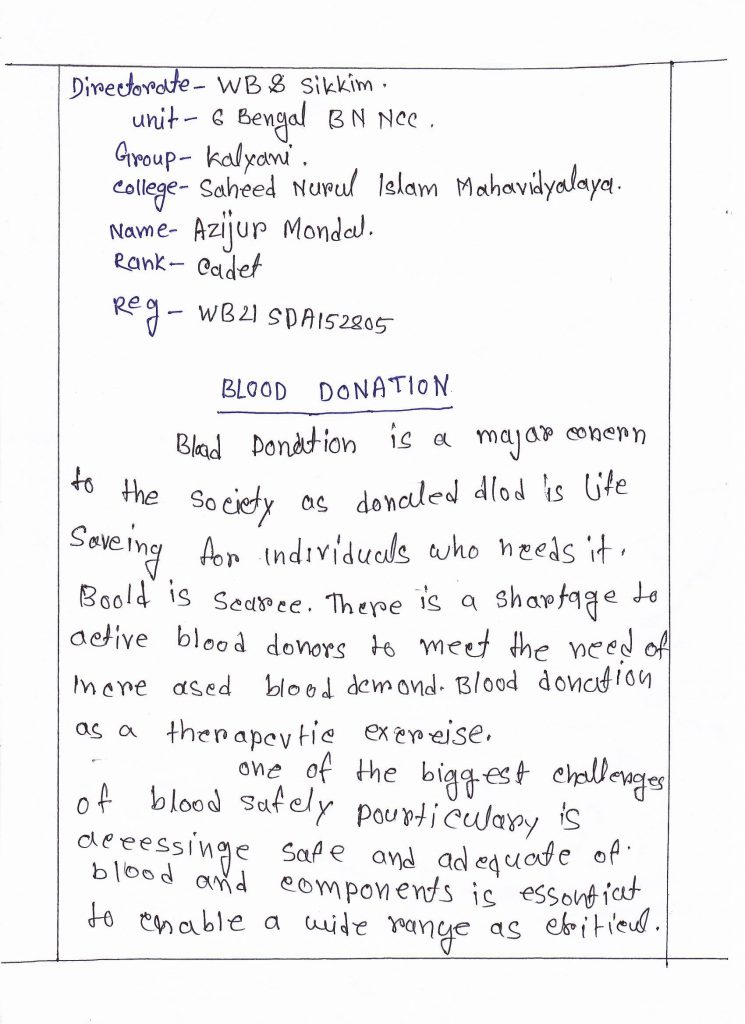 Directorate- WB & Sikkim.
unit- 6 Bengal BN NCC.
Group- kalyani.
College- Saheed Nurul Islam Mahavidyalaya.
Name- Azijur Mondal.
Rank- Cadet
Reg- WB21 SDA152805
BLOOD DONATION
Blad Donation is a majar conern
to the Society as donaled dlod is life
Saveing for individuals who needs it.
Boold is Scarce. There is a shartage to
active blood donors to meet the need of
Incre ased blood demond. Blood donation
as a therapevtic exereise.
one of the biggest challenges
of blood safely pourticulary is
aceessinge safe and adequate of.
blood and components is essontiat
to enable a wide range as critical.